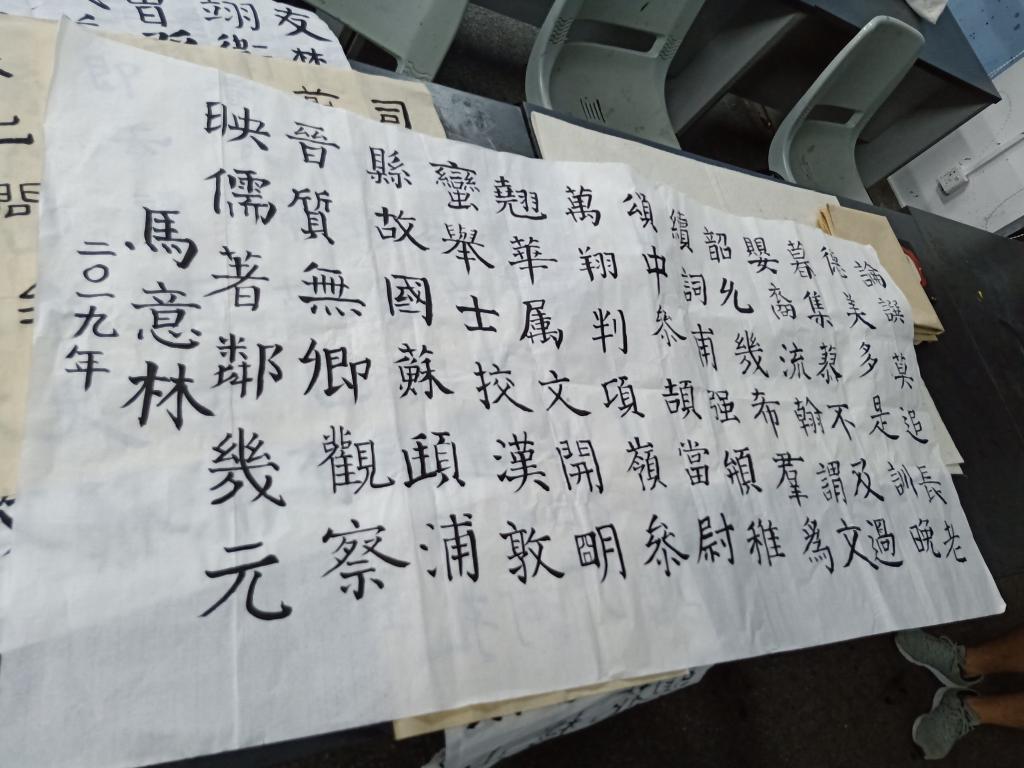 論譔莫追長老
德美多是訓晚
暮集慕不及過
嬰裔流翰謂文
韶允幾布羣爲
續詞甫强領稚
頌中叅頡當尉
萬翔判項嶺叅
翹華属文開明
蠻舉士挍漢敦
縣故國蘇頤浦
晉質無卿觀察
映儒著鄰幾元
馬意林
二〇一九年
司
友林
翊衛